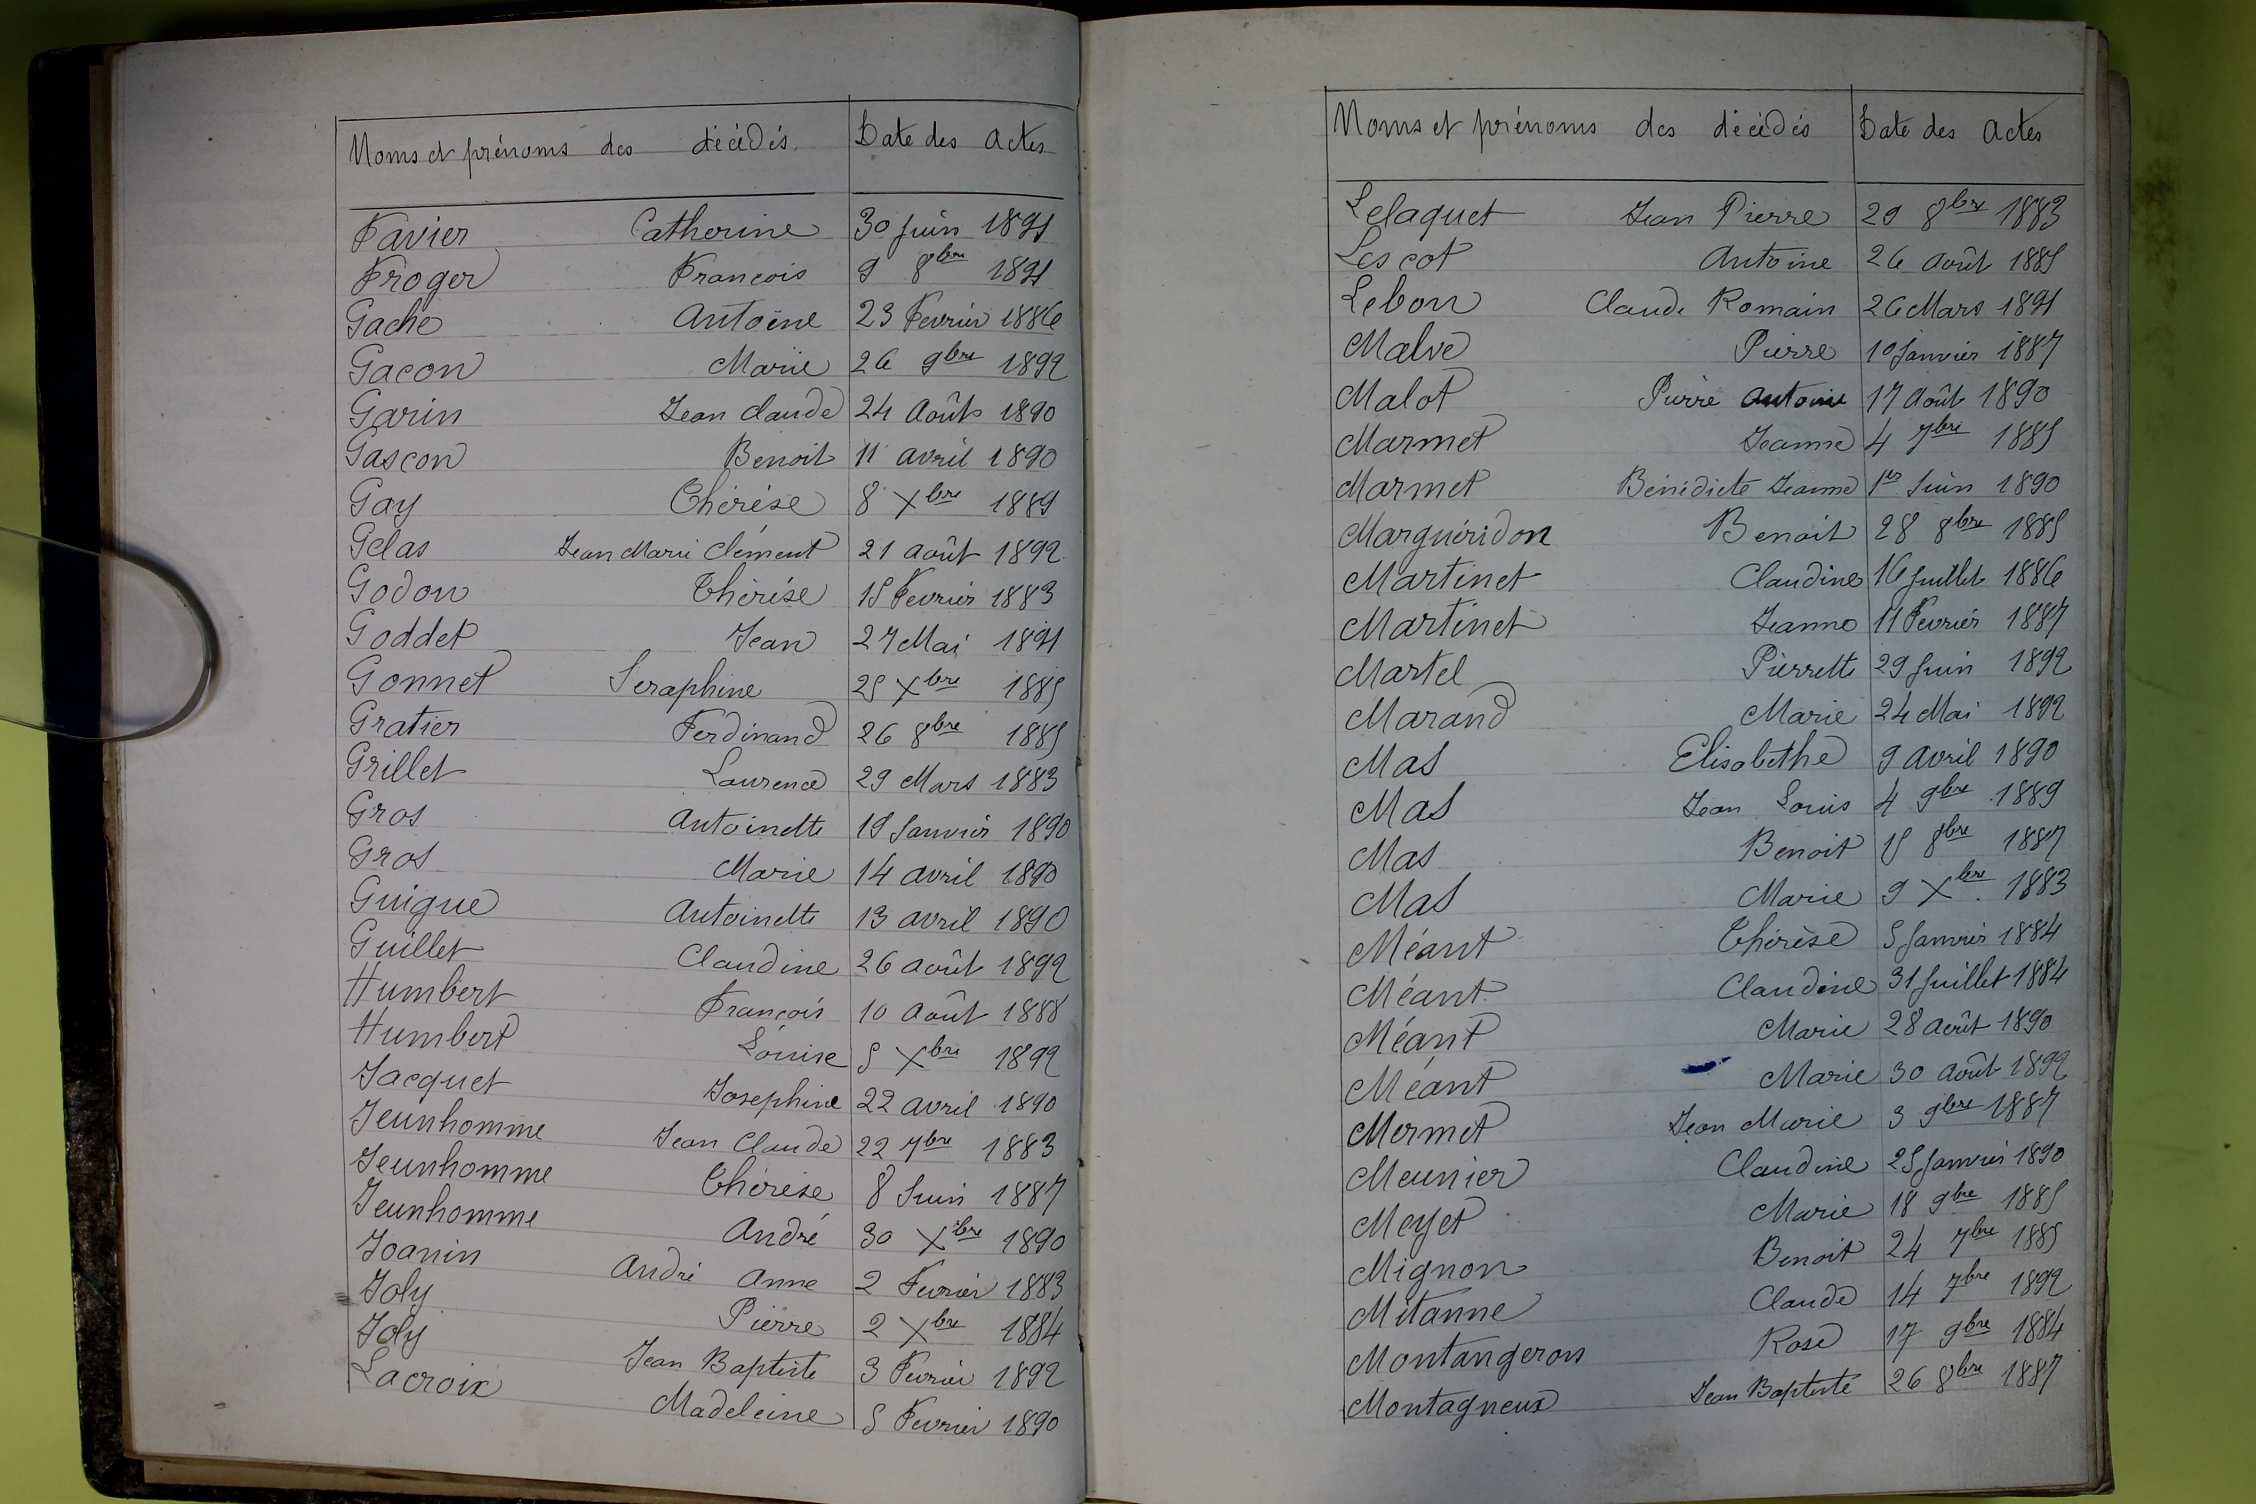 Noms et prénoms des décédés Date des actes
Favier Catherine 30 Juin 1891
Froger François 9 8bre 1891
Gache Antoine 23 Fevrier 1886
Gacon Marie 26 9bre 1892
Garin Jean Claude 24 Août 1890
Gascon Benoit 11 avril 1890
Gay Thérèse 8 Xbre 1889
Gelas Jean Marie Clément 21 août 1892
Godon Thérése 15 Fevrier 1883
Goddet Jean 27 Mai 1891
Gonnet Seraphine 25 Xbre 1885
Gratier Ferdinand 26 8bre 1885
Grillet Laurence 29 Mars 1883
Gros Antoinette 19 Janvier 1890
Gros Marie 14 avril 1890
Guigue Antoinette 13 avril 1890
Guillet Claudine 26 août 1892
Humbert François 10 Août 1888
Humbert Louise 5 Xbre 1892
Jacquet Josephine 22 avril 1890
Jeunhomme Jean Claude 22 7bre 1883
Jeunhomme Thérèse 8 Juin 1887
Jeunhomme André 30 Xbre 1890
Joanin André Anne 2 Fevrier 1883
Joly Pierre 2 Xbre 1884
Joly Jean Baptiste 3 Fevrier 1892
Lacroix Madeleine 5 Fevrier 1890
Noms et prénoms des décédés Date des actes
Lelaquet Jean Pierre 29 8bre 1883
Lescot Antoine 26 août 1885
Lebon Claude Romain 26 Mars 1891
Malve Pierre 10 Janvier 1887
Malot Pierre Antoine 17 Août 1890
Marmet Jeanne 4 7bre 1885
Marmet Bénédicte Jeanne 1er Juin 1890
Marguéridon Benoit 28 8bre 1885
Martinet Claudine 16 Juillet 1886
Martinet Jeanne 11 Fevrier 1887
Martel Pierrette 29 Juin 1892
Marand Marie 24 Mai 1892
Mas Elisabethe 9 avril 1890
Mas Jean Louis 4 9bre 1889
Mas Benoit 15 8bre 1887
Mas Marie 9 Xbre 1883
Méant Thérèse 5 Janvier 1884
Méant Claudine 31 Juillet 1884
Méant Marie 28 août 1890
Méant Marie 30 Août 1892
Mermet Jean Marie 3 9bre 1887
Meunier Claudine 25 Janvier 1890
Meyet Marie 18 9bre 1885
Mignon Benoit 24 7bre 1885
Mitanne Claude 14 7bre 1892
Montangeron Rose 17 9bre 1884
Montagneux Jean Baptiste 26 8bre 1887